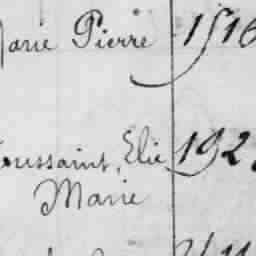 Marie Pierre 1516
Toussaint, Elie 192
Marie